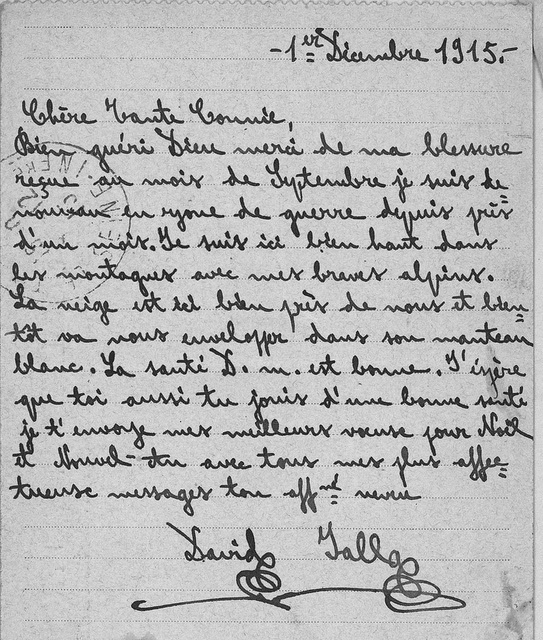 - 1er Décembre 1915.-
Chère Tante Connie,
Bien guéri Dieu merci de ma blessure
reçue au mois de Septembre je suis de
nouveau en zone de guerre depuis près
d'un mois. Je suis ici bien haut dans
les montagnes avec mes braves alpins.
La neige est ici bien près de nous et bien=
tôt va nous envelopper dans son manteau
blanc. La santé D. m. est bonne. J'espère
que toi aussi tu jouis d'une bonne santé
je t'envoye mes meilleurs voeuse pour Noël
et Nouvel-An avec tous mes plus affec=
tueuse messages ton affné neveu
David